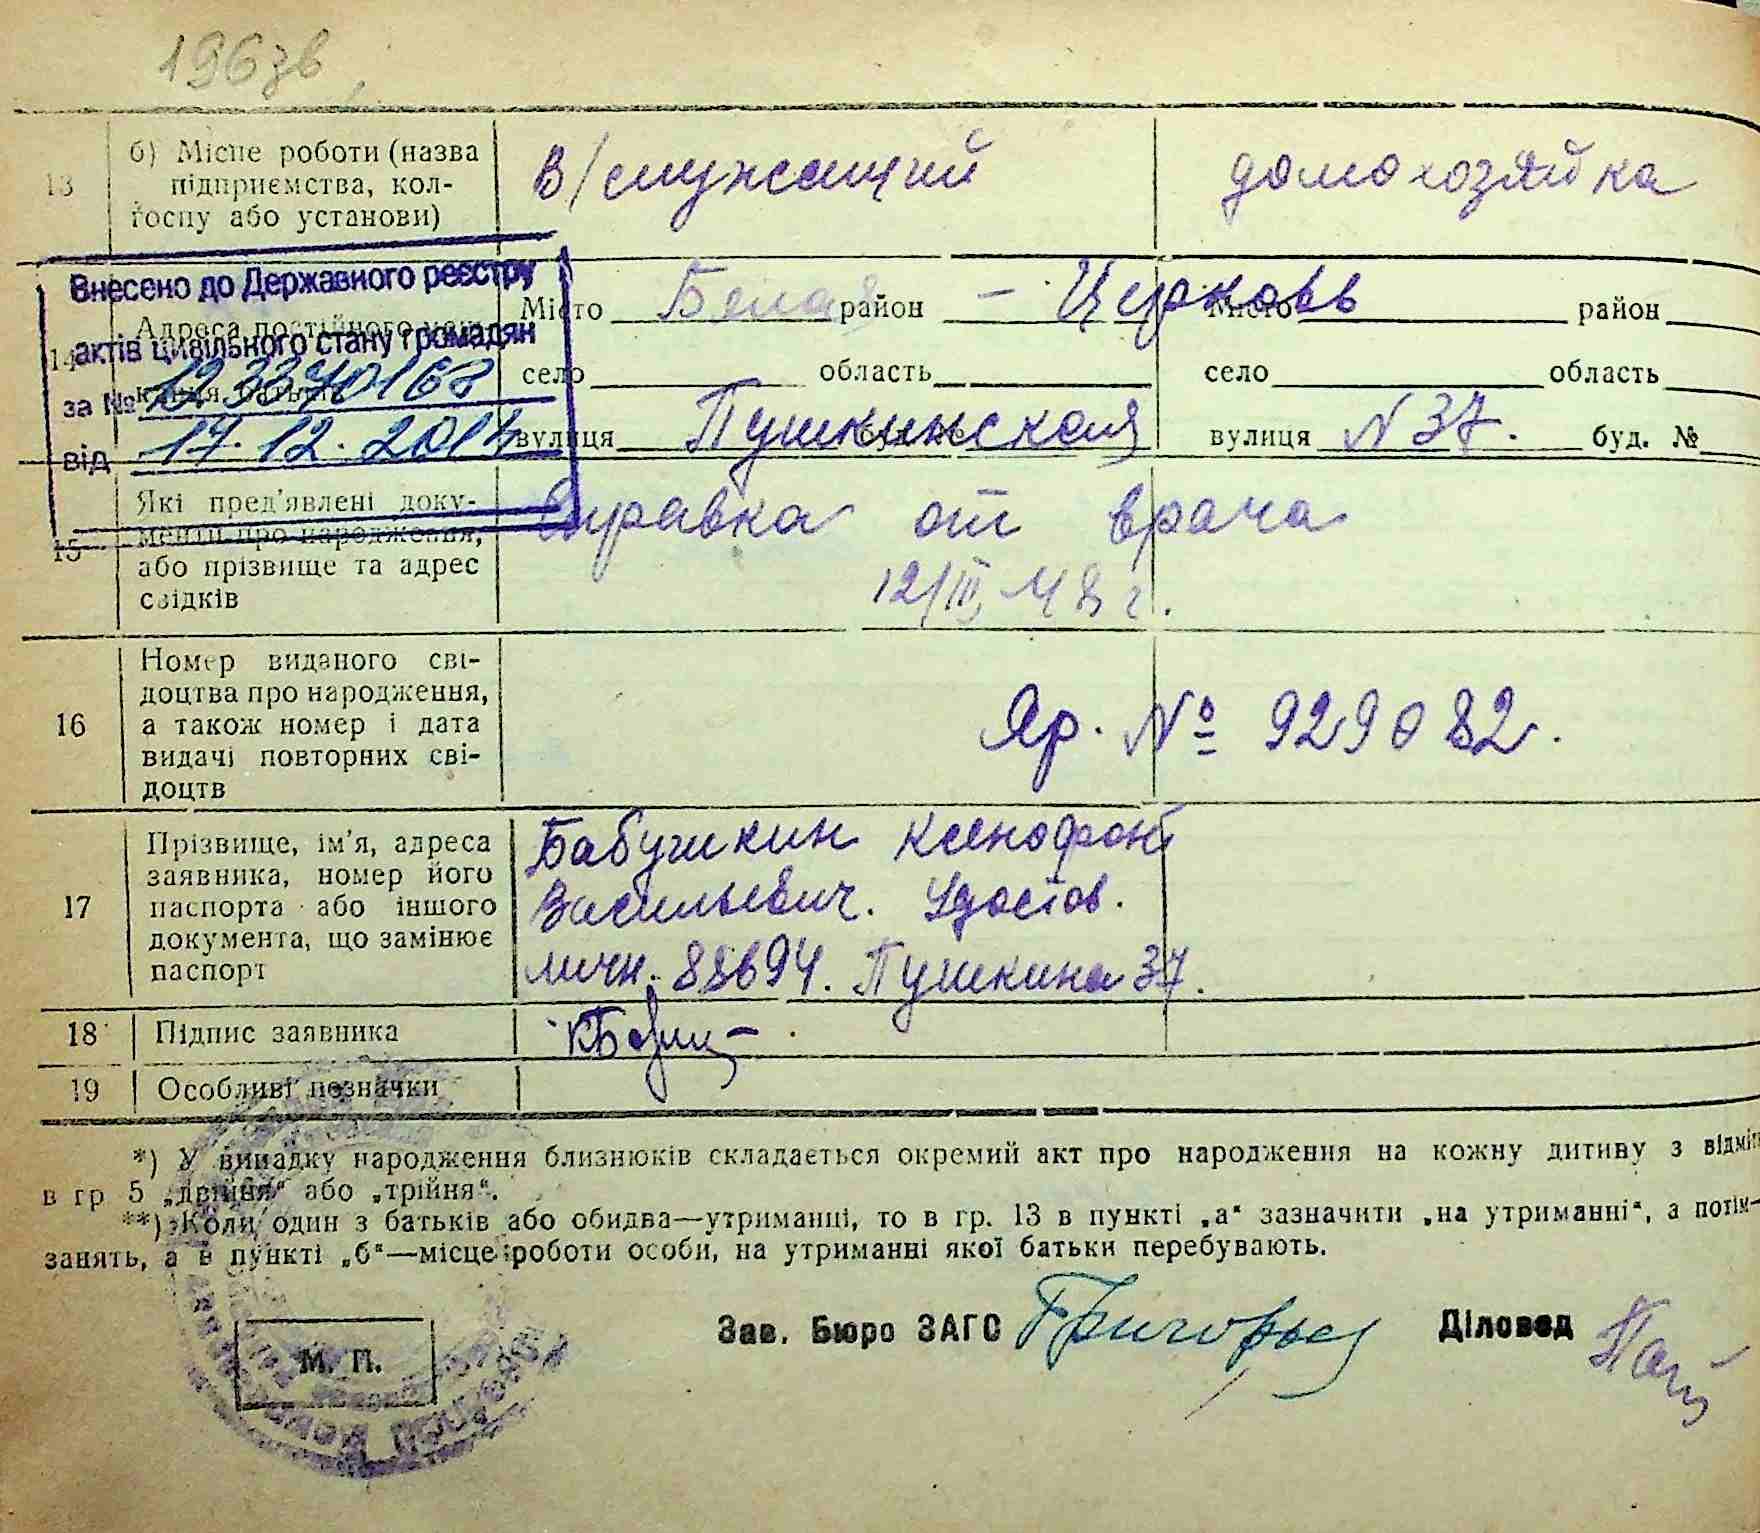 196зв
13
б) Місце роботи (назва
підприємства, кол-
госпу або установи)
В/служащий
домохозяйка
Внесено до Державного реєстру
актів цивільного стану громадян
за №
від 17.12.2014
14
Адреса постійного
Місто Белая район - Церковь Місто район
село область село область
вулиця Пушкинская вулиця N 37. буд. №
15
Які пред'явлені доку-
менти про народження,
або прізвище та адрес
свідків
Справка от врача
12/III 48 г.
16
Номер виданого сві-
доцтва про народження,
а також номер і дата
видачі повторних сві-
доцтв
Яр. № 929082.
17
Прізвище, ім'я, адреса
заявника, номер його
паспорта або іншого
документа, що замінює
паспорт
Бабушкин Ксенофонт
Васильевич. Удостов.
личн. 88694. Пушкина 37.
18
Підпис заявника
19
Особливі позначки
*) У випадку народження близнюків складається окремий акт про народження на кожну дитину з відмі
в гр 5 „двійня“ або „трійня“.
**) Коли один з батьків або обидва—утриманці, то в гр. 13 в пункті „а“ зазначити „на утриманні“, а потім—
занять, а в пункті „б“—місце роботи особи, на утриманні якої батьки перебувають.
Зав. Бюро ЗАГС
Діловод
М. П.